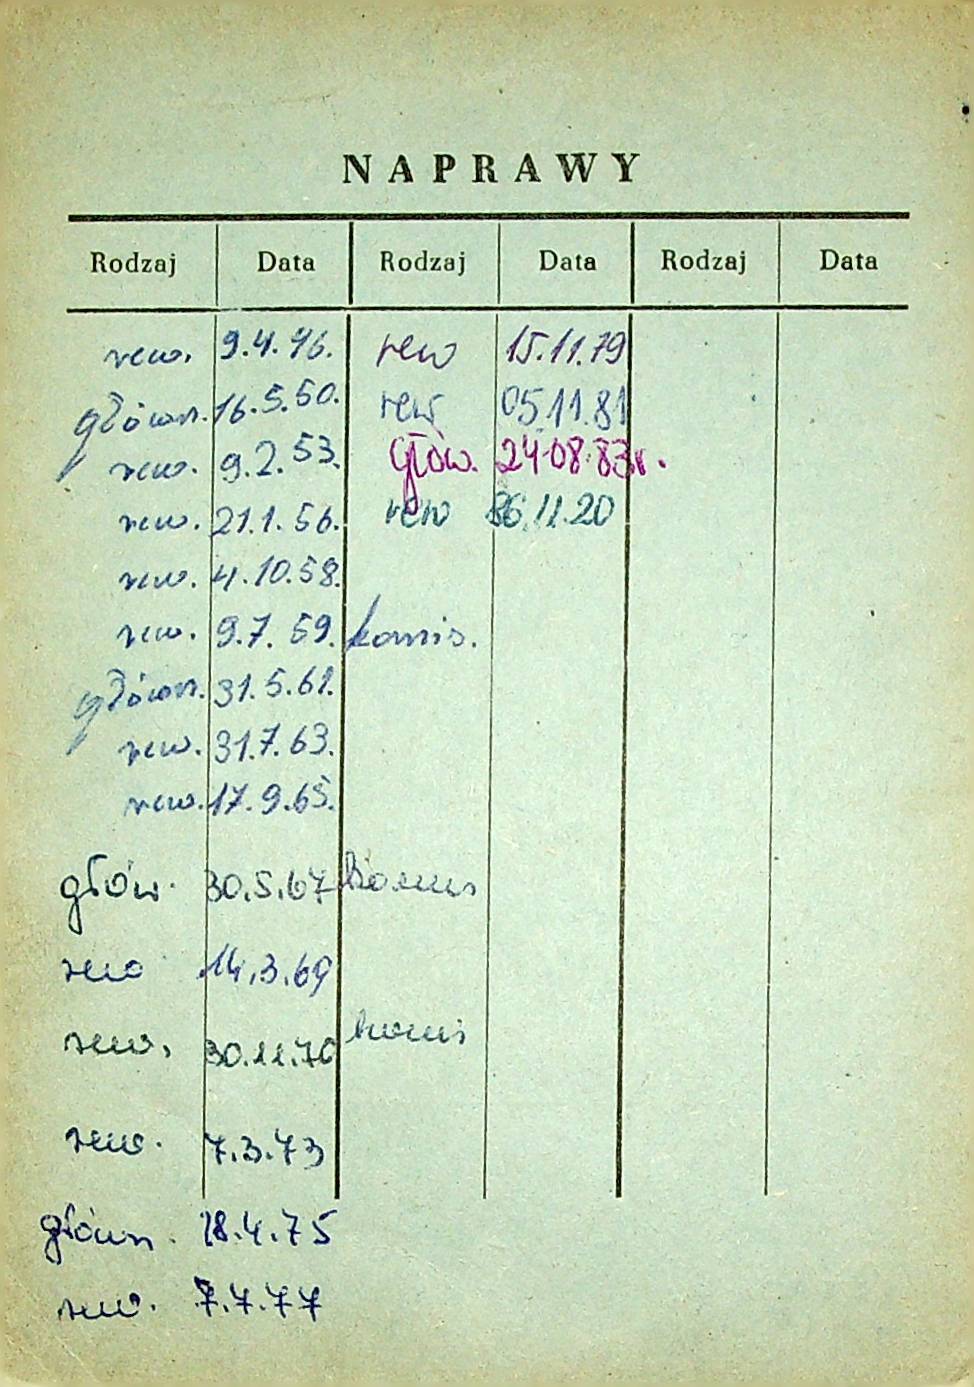 NAPRAWY
Rodzaj Data Rodzaj Data Rodzaj Data
rew. 9.4.46. rew 15.11.79
główn. 16.5.50. rew 05.11.81
rew. 9.2.53. głów. 24.08.83r.
rew. 21.1.56. rew 86.11.20
rew. 4.10.58.
rew. 9.7.59. komis.
główn. 31.5.61.
rew. 31.7.63.
rew. 17.9.65.
głów. 30.5.67 komis
rew 14.3.69
rew. 30.11.70 komis
rew. 7.3.73
główn. 18.4.75
rew. 7.7.77